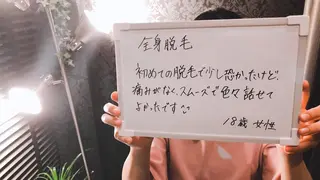 全身脱毛
初めての脱毛で少し恐かったけど、
痛みがなく、スムーズで色々話せて
よかったです
18歳 女性